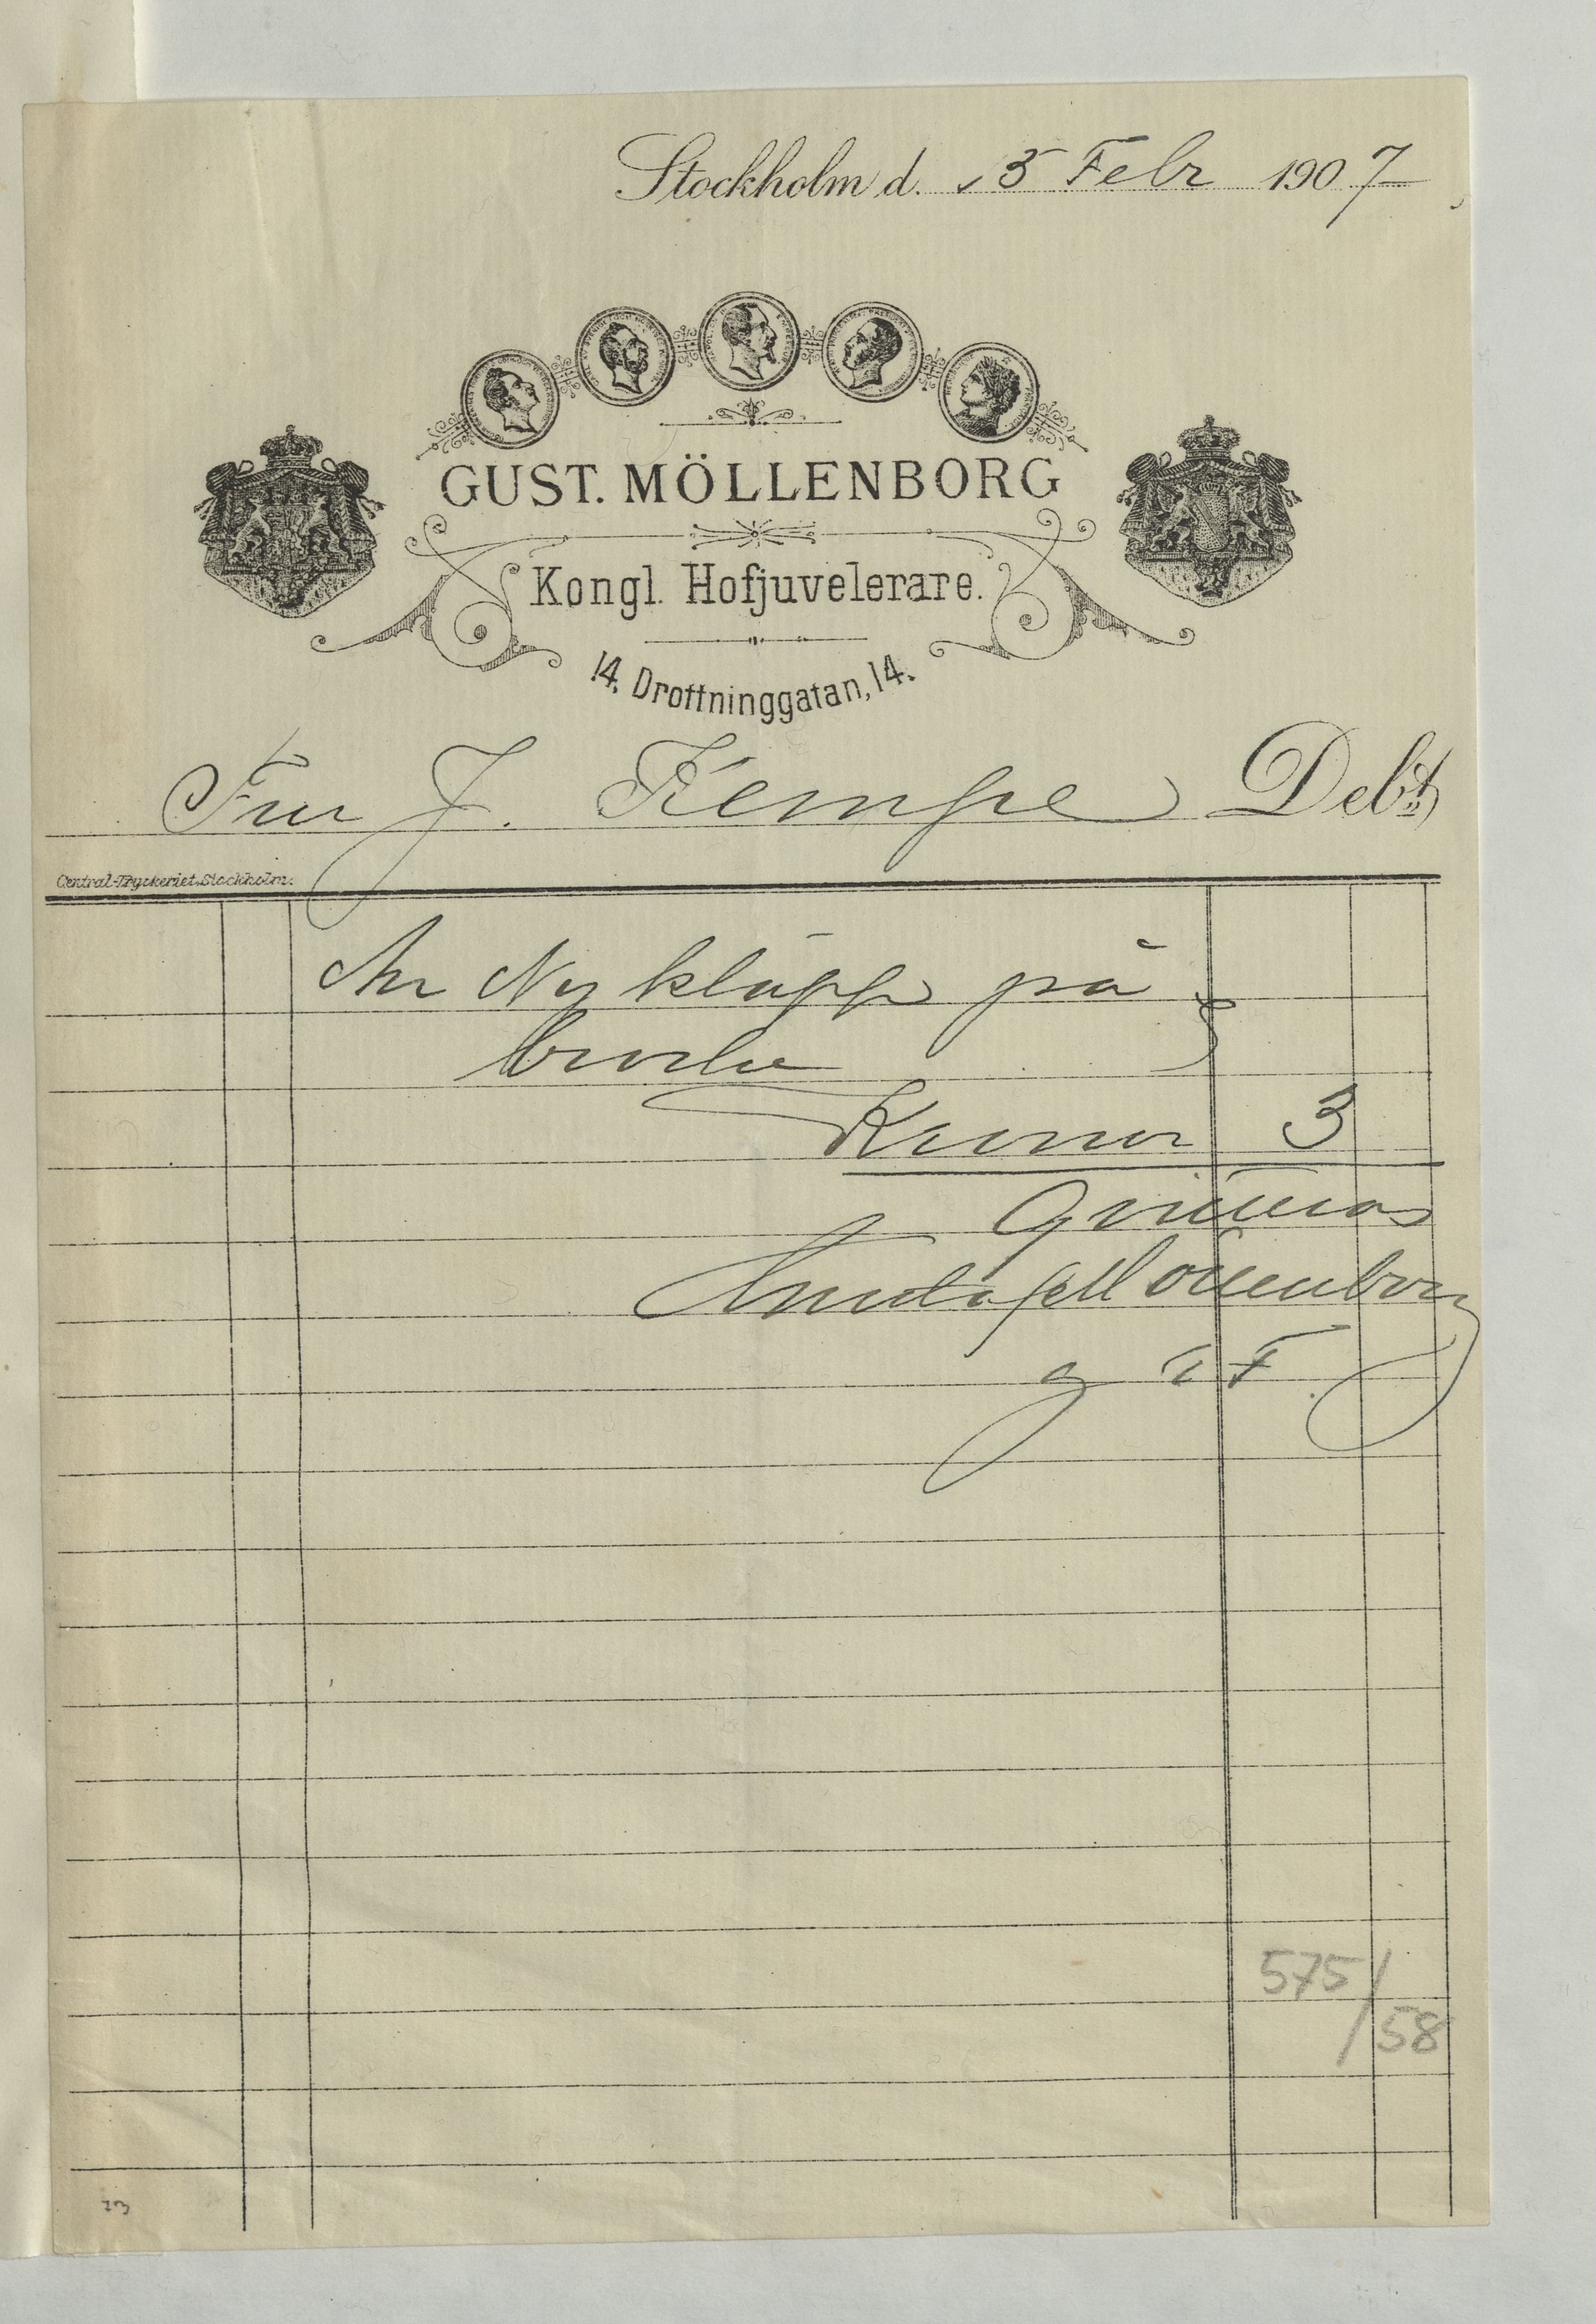 Stockholm d. 15 Febr 1907
GUST. MÖLLENBORG
Kongl. Hofjuvelerare.
14, Drottninggatan, 14.
Fru J. Kempe Debt
Central-Tryckeriet, Stockholm.
An Ny kläpp på
Kronor 3
Qvitteras
Gustaf Möllenborg
g T F
575/
58
23